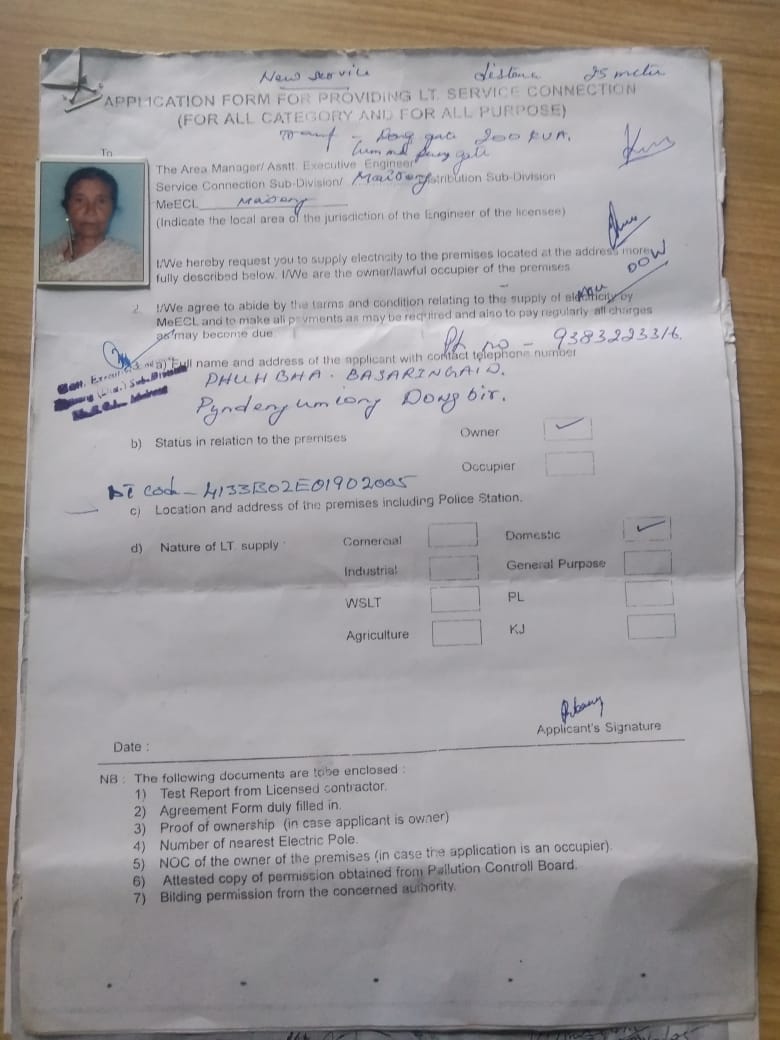 New service distance 25 meter
APPLICATION FORM FOR PROVIDING LT. SERVICE CONNECTION
(FOR ALL CATEGORY AND FOR ALL PURPOSE)
200 KVA.
To
The Area Manager/ Asstt. Executive Engineer
Service Connection Sub-Division/ Distribution Sub-Division
MeECL
(Indicate the local area of the jurisdiction of the Engineer of the licensee)
I/We hereby request you to supply electricity to the premises located at the address more
fully described below. I/We are the owner/lawful occupier of the premises
DOW
2. I/We agree to abide by the terms and condition relating to the supply of electricity by
MeECL and to make all payments as may be required and also to pay regularly all charges
as may become due
Ph no - 9383223316.
a) Full name and address of the applicant with contact telephone number
PHUHBHA. BASARINGAID.
Pyndengumiong Dongbir.
b) Status in relation to the premises Owner ✓
Occupier
DT code - 4133B02E01902005
c) Location and address of the premises including Police Station.
d) Nature of LT. supply Comercial Domestic ✓
Industrial General Purpose
WSLT PL
Agriculture KJ
Applicant's Signature
Date :
NB : The following documents are tobe enclosed :
1) Test Report from Licensed contractor.
2) Agreement Form duly filled in.
3) Proof of ownership (in case applicant is owner)
4) Number of nearest Electric Pole.
5) NOC of the owner of the premises (in case the application is an occupier).
6) Attested copy of permission obtained from Pollution Controll Board.
7) Bilding permission from the concerned authority.